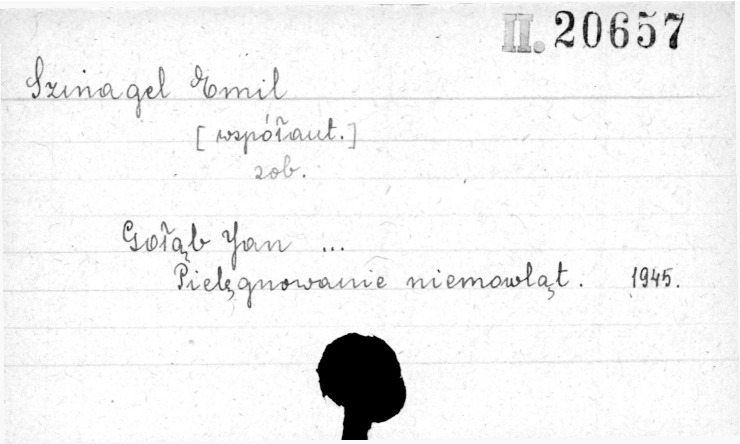 II. 20657
Szmagel Emil
[współaut.]
zob.
Gołąb Jan ...
Pielęgnowanie niemowląt. 1945.